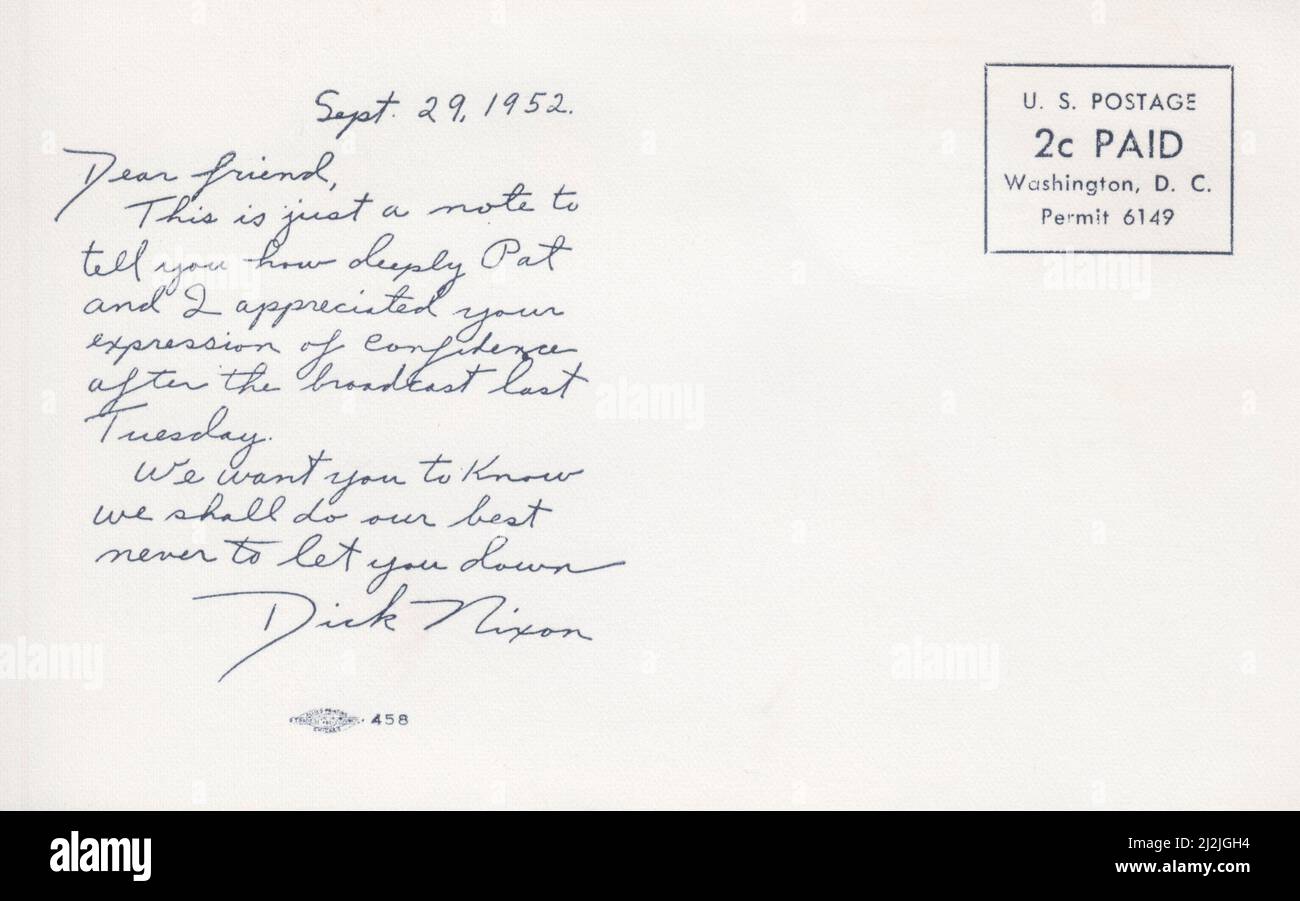 Sept. 29, 1952.
Dear friend,
This is just a note to
tell you how deeply Pat
and I appreciated your
expression of confidence
after the broadcast last
Tuesday.
We want you to know
we shall do our best
never to let you down
Dick Nixon
458
U. S. POSTAGE
2c PAID
Washington, D. C.
Permit 6149
alamy
alamy
alamy
alamy
alamy
alamy
Image ID: 2J2JGH4
www.alamy.com